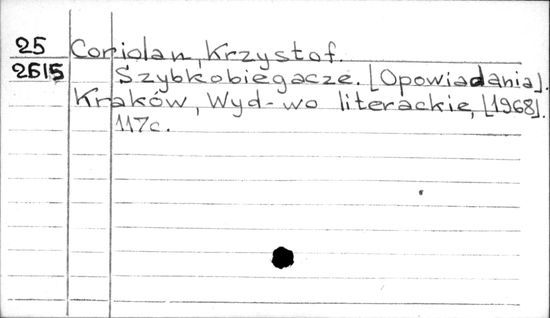 25 Coriolan, Krzystof.
2615 Szybkobiegacze. [Opowiadania].
Kraków, Wyd-wo literackie, [1968].
117c.